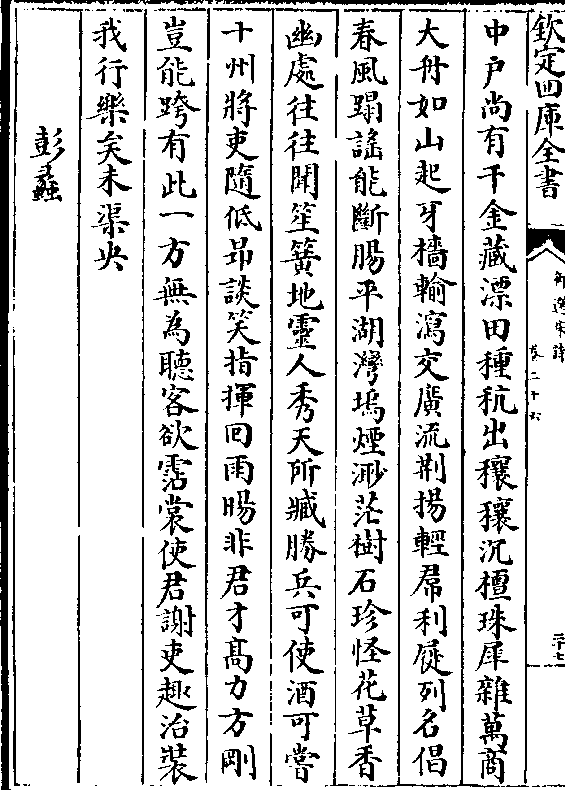 欽定四庫全書
御選宋詩
卷二十六
二十七
中戶尚有千金藏漂田種秔出穰穰沉檀珠犀雜萬商
大舟如山起牙檣輸瀉交廣流荆揚輕㞕利屣列名倡
春風蹋謠能斷腸平湖灣塢煙渺茫樹石珍怪花草香
幽處往往聞笙簧地靈人秀天所臧勝兵可使酒可嘗
十州將吏隨低昻談笑指揮回雨暘非君才髙力方剛
豈能跨有此一方無為聽客欲霑裳使君謝吏趣治裝
我行樂矣未渠央
彭蠡